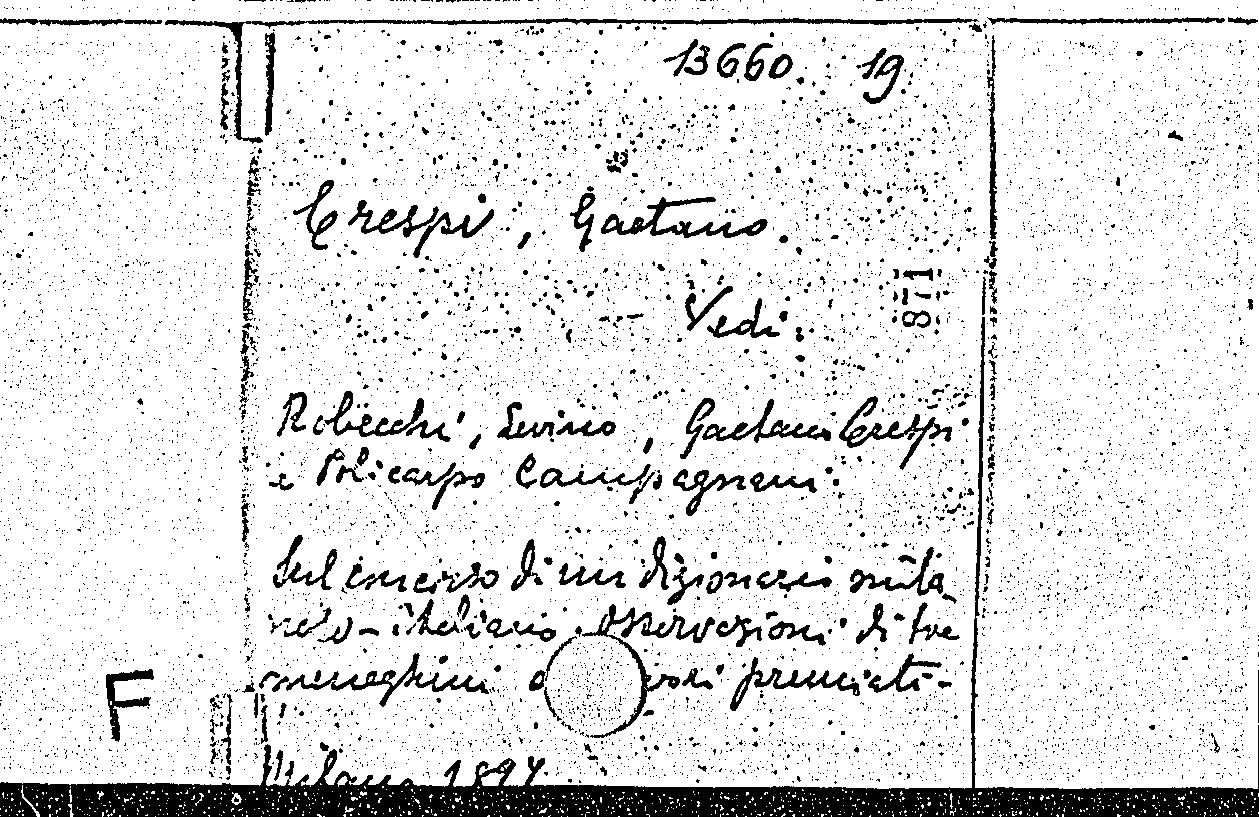 13660. 19
Crespi, Gaetano.
871
— Vedi:
Robecchi, Livino, Gaetano Crespi
e Policarpo Campagnani.
Sul concorso di un dizionario mila_
nese-italiano. Osservazioni di tre
meneghini premiati.
F
Milano 1897